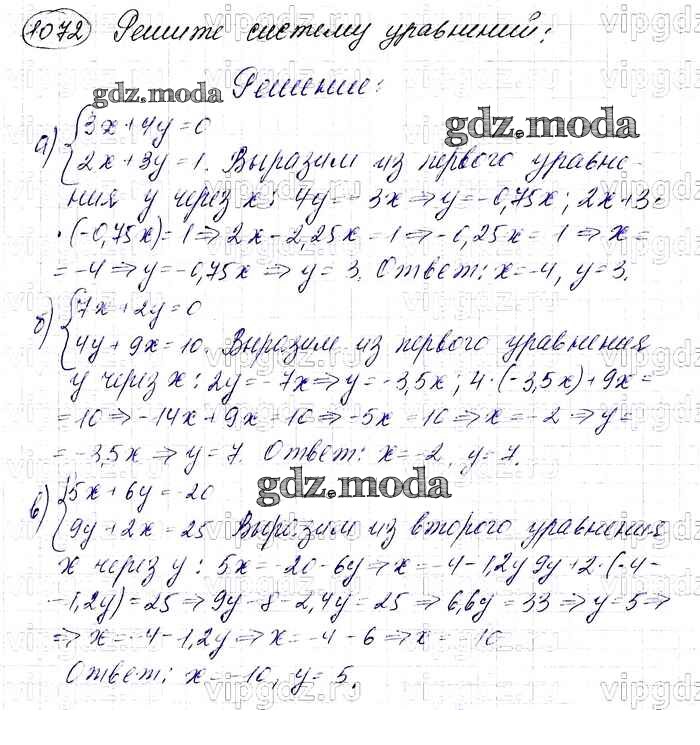 1072 Решите систему уравнений:
gdz.moda Решение:
а) {3x+4y=0 gdz.moda
{2x+3y=1. Выразим из первого уравне-
ния y через x: 4y=-3x⇒y=-0,75x; 2x+3·
·(-0,75x)=1⇒2x-2,25x=1⇒-0,25x=1⇒x=
=-4⇒y=-0,75x⇒y=3. Ответ: x=-4, y=3.
б) {7x+2y=0
{4y+9x=10. Выразим из первого уравнения
y через x: 2y=-7x⇒y=-3,5x; 4·(-3,5x)+9x=
=10⇒-14x+9x=10⇒-5x=10⇒x=-2⇒y=
=-3,5x⇒y=7. Ответ: x=-2, y=7.
gdz.moda
в) {5x+6y=-20
{9y+2x=25 Выразим из второго уравнения
x через y: 5x=-20-6y⇒x=-4-1,2y 9y+2·(-4-
-1,2y)=25⇒9y-8-2,4y=25⇒6,6y=33⇒y=5⇒
⇒x=-4-1,2y⇒x=-4-6⇒x=-10
Ответ: x=-10, y=5.
vipgdz.ru